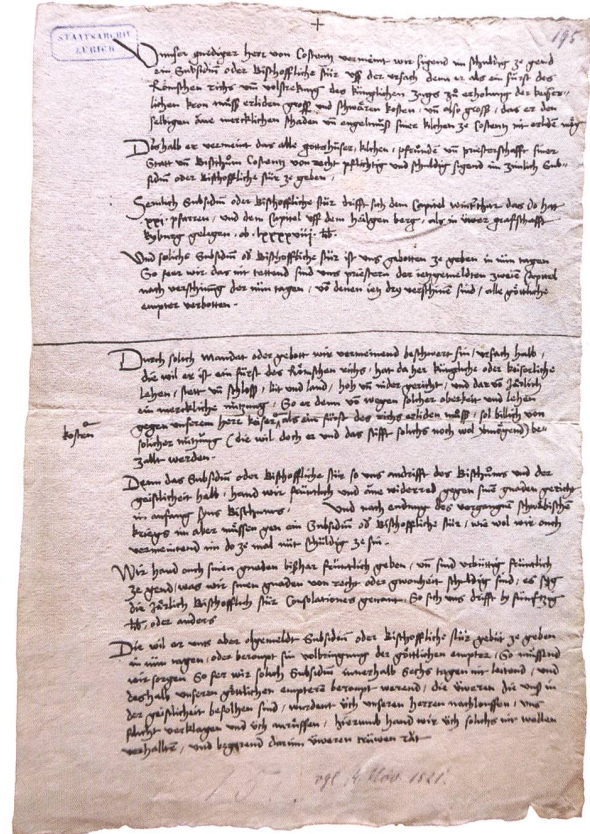 STAATSARCHIV
ZÜRICH
195
Unnser gnediger herr von Costenntz vermeint wir sigend im schuldig ze gend
ein Subsidiū oder Bischoffliche stür uff der ursach denn er als ein fürst des
Römschen richs uñ volstrekung des künglichen zugs zů erholung der keiser-
lichen kron müss erliden gross und schwären kosten, uñ also gross, das er den
selbigen āne mercklichen schaden uñ siner kilchen ze Costentz nit erlidē mög
Deshalb er vermeint das alle gottshüser, kilchen, pfründē uñ priesterschafft siner
Statt uñ Bisthům Costentz von recht pflichtig und schuldig sigend im zimlich Sub-
sidiū oder Bischoffliche stür ze geben,
Semlich Subsidiū oder Bischoffliche stür drifft sich dem Capitel winterthur das do hat
xxj. pfarren, und dem Capitel uff dem heilgen berg, als in üwer graffschafft
kyburg gelegen, ob. lxxxxviij. lb.
Und soliche Subsidiū od Bischoffliche stür ist uns gebotten ze geben in nün tagen
So feer wir das nit tettend sind uns priestern der iezgemeldten zweien Capitel
nach verschinung der nün tagen, vō denen iez dry verschinen sind, alle göttliche
empter verbotten.
Durch solich mandat oder gebott wir vermeinend beschwert sin, ursach halb,
die wil er ist ein fürst des Römschen richs, hat da her küngliche oder keiserliche
Lehen, stett uñ schloss, lüt und land, hoh uñ nider gericht, und darvō Järlich
ein merckliche nützung, So er denn vō wegen solicher oberkeit und lehen
gegen unserem herr keiser, als ein fürst des richs erliden müss, sol billich von
kosten
solicher nützung (die wil doch er und das stifft solichs noch wol vermögend) be-
zalt werden.
Denn das Subsidiū oder Bischoffliche stür so uns andrifft des Bisthůms und der
geistlicheit halb, hand wir früntlich und āne widerred gegen sinē gnaden gericht
in anfang syns Bisthums, Und nach endung des vergangnē schwäbische
kriegs im aber müssen gen ein Subsidiū od Bischoffliche stür, wie wol wir ouch
vermeintend im do ze mal nüt schuldig ze sin.
Wir hand ouch sinen gnaden bishar früntlich geben, uñ sind urbüttig früntlich
ze gend, was wir sinen gnaden von recht oder gwonheit schuldig sind, es syg
die Järlich Bischofflich stür Consolationes genant, So sich uns drifft by fünfzig
lb, oder anders
Die wil er uns aber obgemeldt Subsidiū oder Bischoffliche stür gebüt ze geben
in nün tagen, oder beropt sin volbringung der göttlichen empter, So müssend
wir sorgen So fer wir solich Subsidiū innerhalb Sechs tagen nit leistend, und
deshalb unseren göttlichen emptere beropt werend, die üweren die uns in
der geistlicheit befolhen sind, wurdent üch unseren herren nachlouffen, uns
villicht verklagen und üch anrüffen, hierumb hand wir üch solichs nit wellen
verhalten, und begerend darinn üweren trüwen rāt
vgl. Nov. 1821.